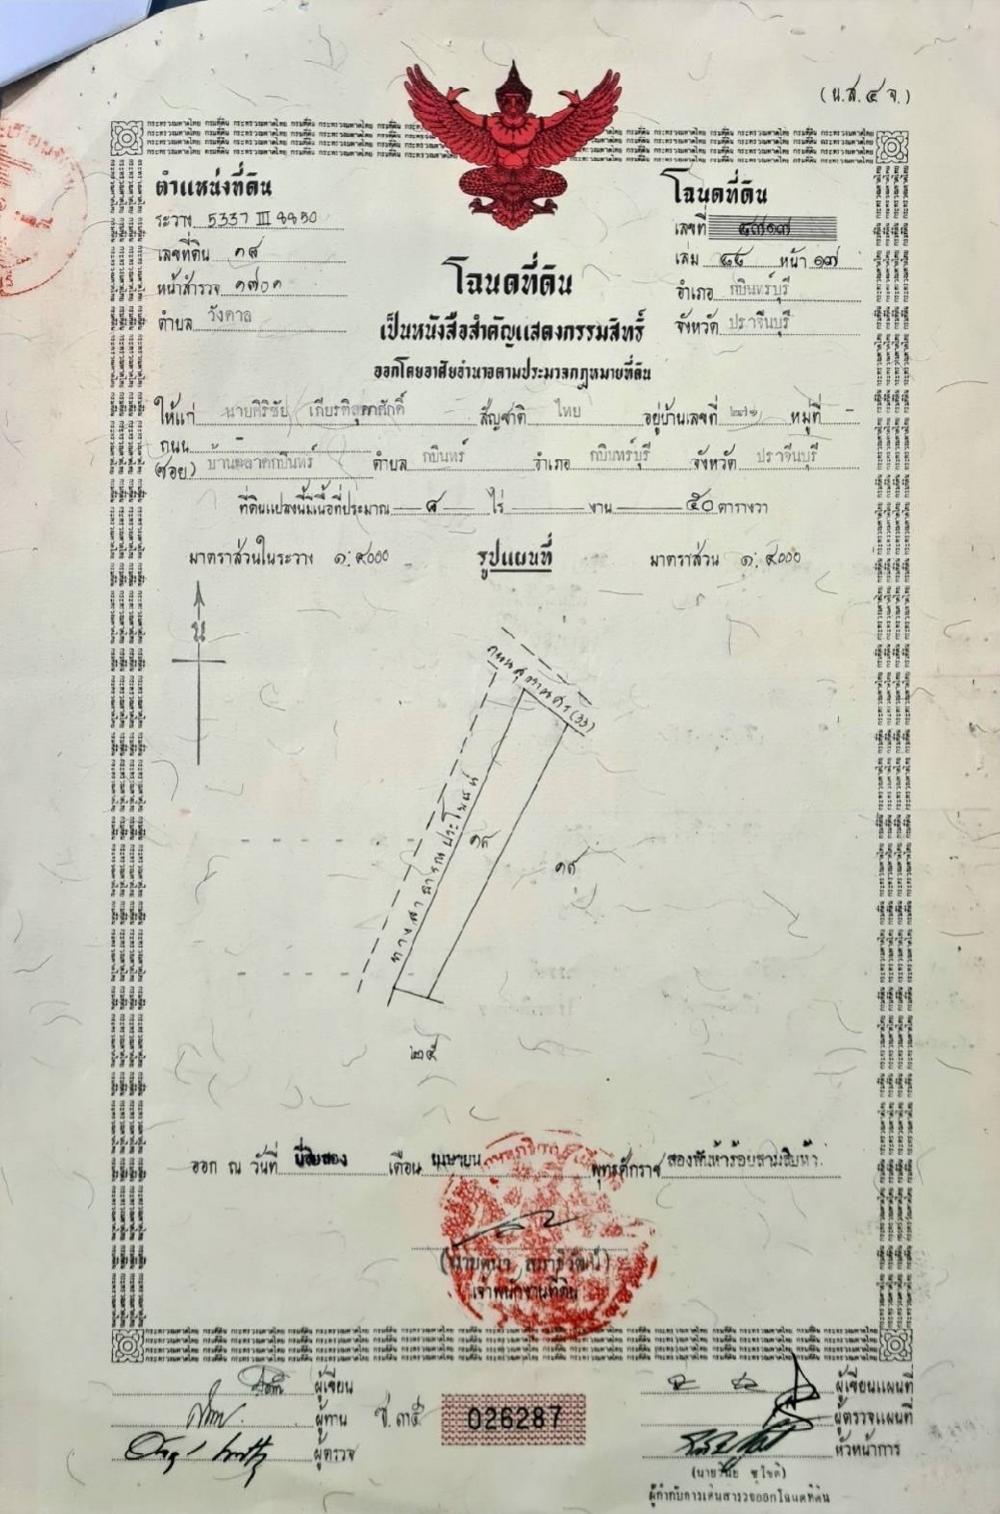 (น.ส.๔ จ.)
ตำแหน่งที่ดิน
ระวาง 5337 III 8850
เลขที่ดิน ๑๘
หน้าสำรวจ ๑๗๐๑
ตำบล วังดาล
โฉนดที่ดิน
เลขที่ ๔๗๑๗
เล่ม ๔๘ หน้า ๑๗
อำเภอ กบินทร์บุรี
จังหวัด ปราจีนบุรี
โฉนดที่ดิน
เป็นหนังสือสำคัญแสดงกรรมสิทธิ์
ออกโดยอาศัยอำนาจตามประมวลกฎหมายที่ดิน
ให้แก่ นายศิริชัย สัญชาติ ไทย อยู่บ้านเลขที่ หมู่ที่ -
ถนน
(ซอย) บ้านตลาดกบินทร์ ตำบล กบินทร์ อำเภอ กบินทร์บุรี จังหวัด ปราจีนบุรี
ที่ดินแปลงนี้มีเนื้อที่ประมาณ ๘ ไร่ - งาน ๕๐ ตารางวา
มาตราส่วนในระวาง ๑:๔๐๐๐ รูปแผนที่ มาตราส่วน ๑:๔๐๐๐
น
ถนนสุวรรณศร (33)
ทางสาธารณประโยชน์
๑๘
๑๙
๒๕
ออก ณ วันที่ ยี่สิบสอง เดือน เมษายน พุทธศักราช สองพันห้าร้อยสามสิบห้า
เจ้าพนักงานที่ดิน
ผู้เขียน
ผู้ทาน
ผู้ตรวจ
026287
ผู้เขียนแผนที่
ผู้ตรวจแผนที่
หัวหน้าการ
(นายวินัย ชูโชติ)
ผู้กำกับการเดินสำรวจออกโฉนดที่ดิน